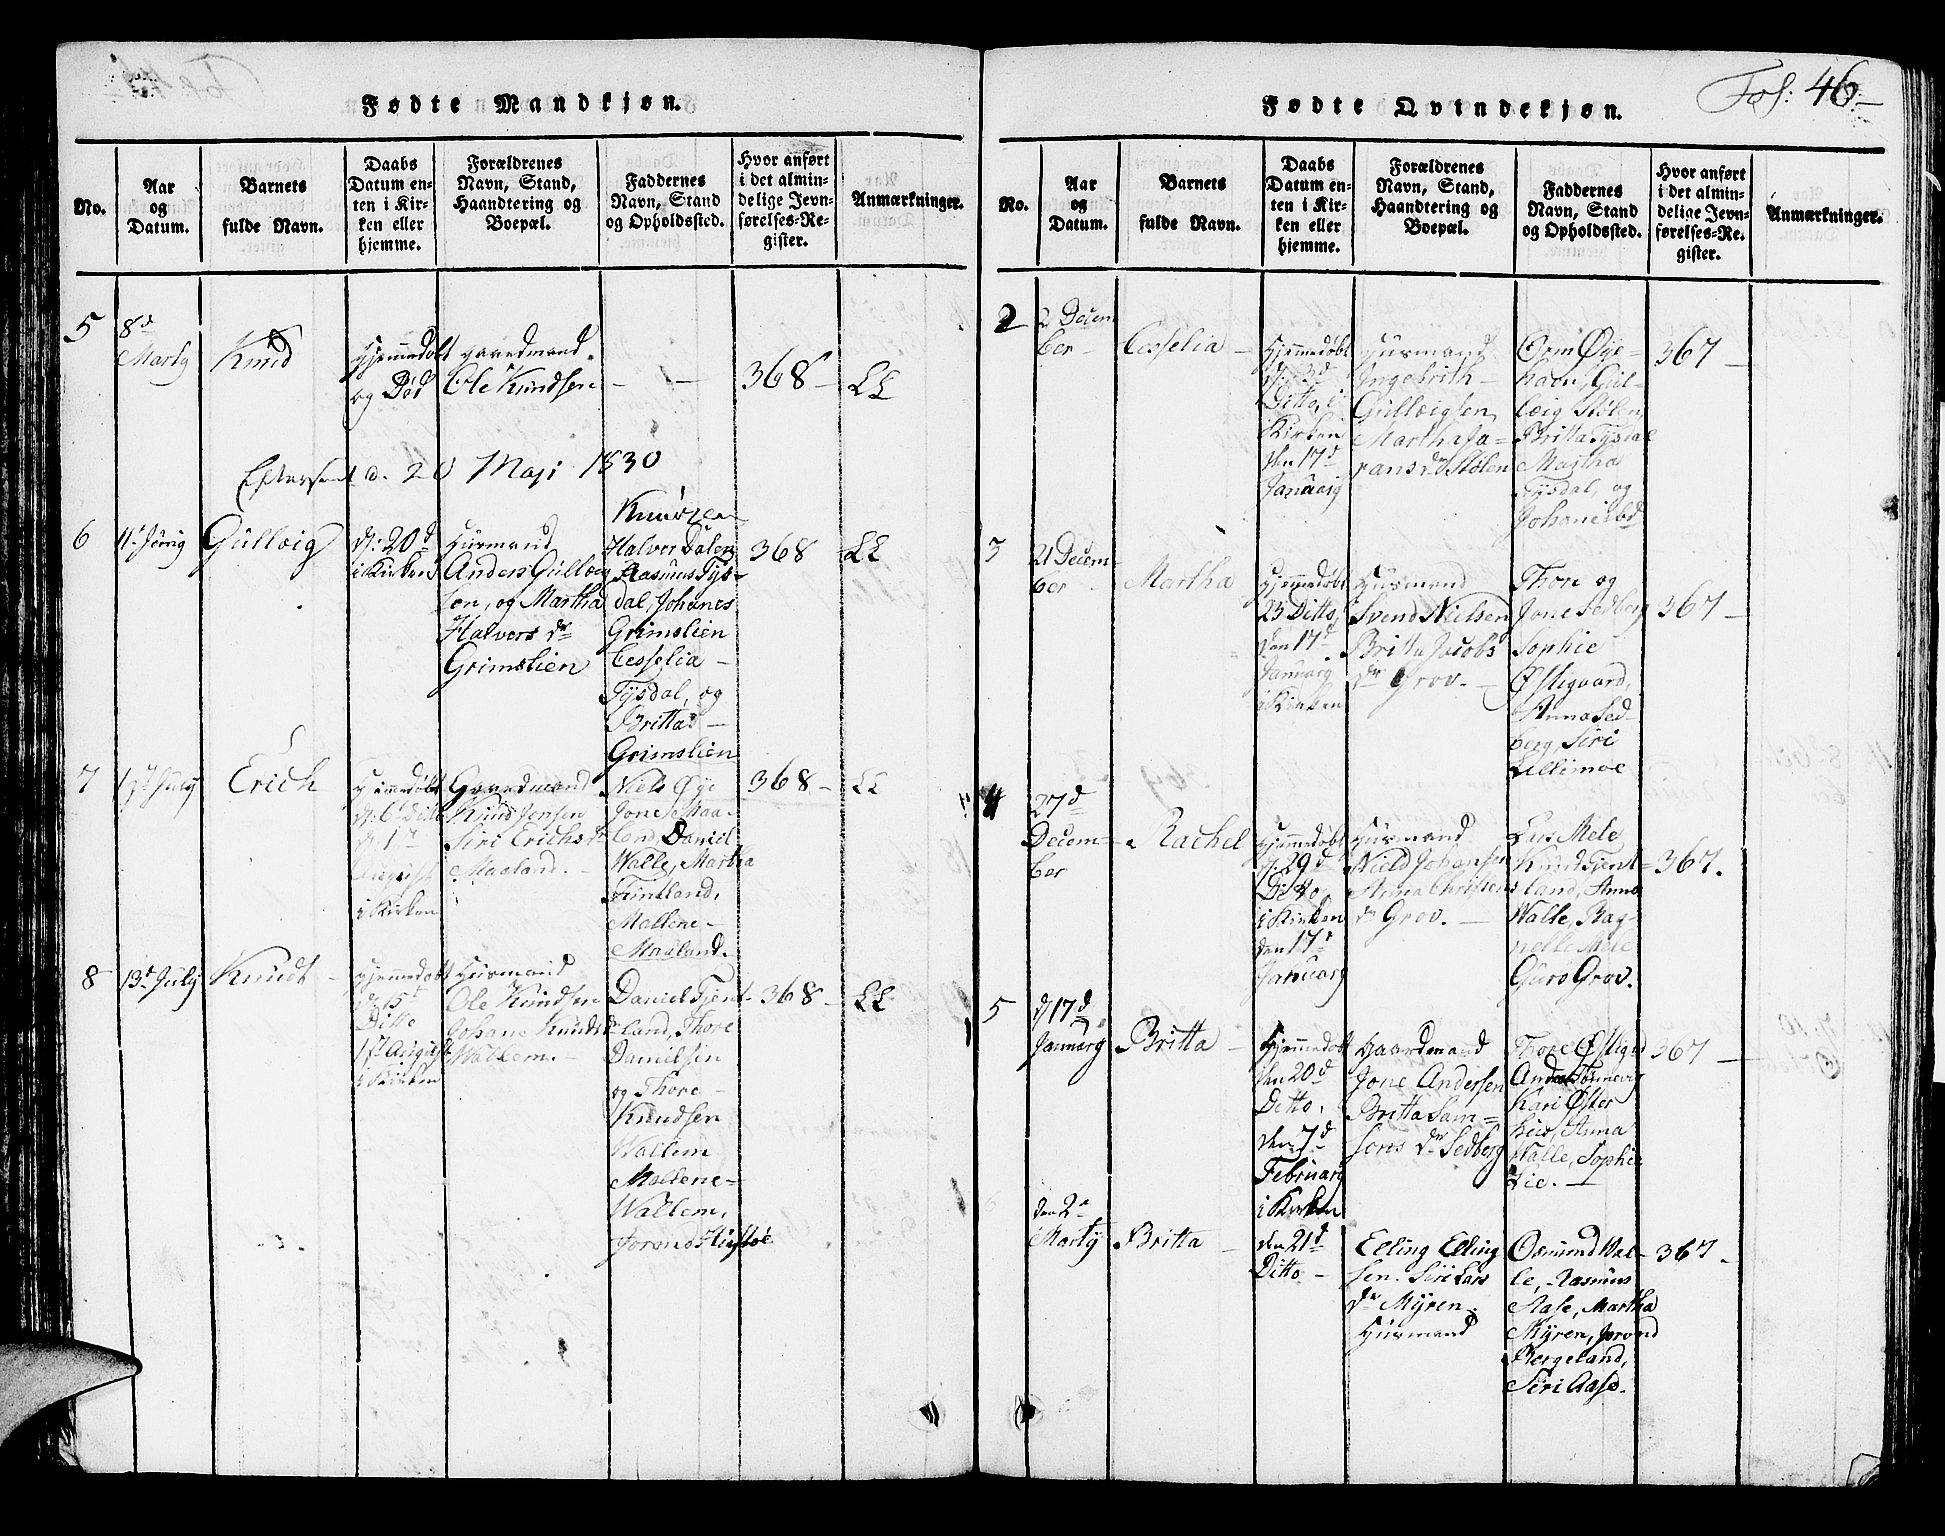 Fødte Mandkjøn.
No.
Aar
og
Datum.
Barnets
fulde Navn.
Daabs
Datum en-
ten i Kir-
ken eller
hjemme.
Forældrenes
Navn, Stand,
Haandtering og
Boepæl.
Faddernes
Navn, Stand
og Opholdssted.
Hvor anført
i det almin-
delige Jevn-
førelses-Re-
gister.
Anmærkninger.
5
8d
Marty
Knud
Hjemmedøbt
og Død
Gaardmand
Ole Knudsen
368 -
LL
d. 20 Maji 1830
6
11t Junij
Gulleig
d: 20d
i Kirken
Husmand
Anders Gulleig
sen, og Martha
Halvors dr
Grimslien
Halver Dalen
Rasmus Tys-
dal, Johanes
Grimslien
Cesselia -
Tysdal, og
Britta -
Grimslien
368
LL
7
July
Erich
Hjemmedøbt
d: 6 Ditto
d. 1t
August
i Kirken
Gaardmand
Knud Jonsen
Siri Erichs dr
Maaland.
Niels Øye
Jone Maa-
land Daniel
Walle, Martha
Fintland,
Mallene -
Maaland.
368 -
LL
8
13t July
Knudt -
Hjemmedøbt
d. 15t
Ditto
17t August
i Kirken
Husmand
Ole Knudsen
Johane Knuds dr
Wallem. -
Daniel Tjent-
land, Thore
Danielsen
og Thore -
Knudsen
Wallem
Mallene -
Wallem,
368 -
LL
Fødte Qvindekjøn.
Fol: 46 -
No.
Aar
og
Datum.
Barnets
fulde Navn.
Daabs
Datum en-
ten i Kir-
ken eller
hjemme.
Forældrenes
Navn, Stand,
Haandtering og
Boepæl.
Faddernes
Navn, Stand
og Opholdssted.
Hvor anført
i det almin-
delige Jevn-
førelses-Re-
gister.
Anmærkninger.
2
2 Decem
ber -
Cesselia -
Hjemmedøbt
d. 3d
Ditto, i
Kirken
den 17d
Januarij
Husmand
Ingebrith -
Gulleigsen
Martha Ja-
rans dr Stølen
Orm Øye-
havn, Gul-
leig Stølen
Britta Tysdal
Martha
Tysdal, og
367 -
3
21 Decem-
ber -
Martha
Hjemmedøbt
23 Ditto,
den 17d
Januarij
i Kirken
Husmand
Svend Nielsen
Britta Jacobs
dr Grov. -
Thore og
Jone Sedberg
Sophie
Østigaard,
Anna Sed-
berg, Siri
Lillimoe
367 -
4
27d
Decem-
ber
Rachel
Hjemmedøbt
d. 29d
Ditto,
i Kirken
den 17d
Januarij
Husmand
Niels Johansen
Anna Christens
dr Grov. -
Lars Mele
Knud Tjent-
land, Anna
Walle, Rag-
nelle Mele
Guro Grov.
367.
5
d 17d
Januarij
Britta -
Hjemmedøbt
den 20d
Ditto,
den 7d
Februarij
i Kirken
Gaardmand
Jone Andersen
Britta Sam-
sons dr Sedberg
Thore Østigrd
Kari Øster
hus, Anna
Walle, Sophie
Lie. -
367 -
den 2n
Marty
Britta -
den 21d
Ditto -
Elling Elling
sen. Siri Lars
dr Myren.
Husmand
Osmund Wal-
le, Rasmus
Aase, Martha
Myren, Jorond
Bergeland,
Siri Aase.
367 -